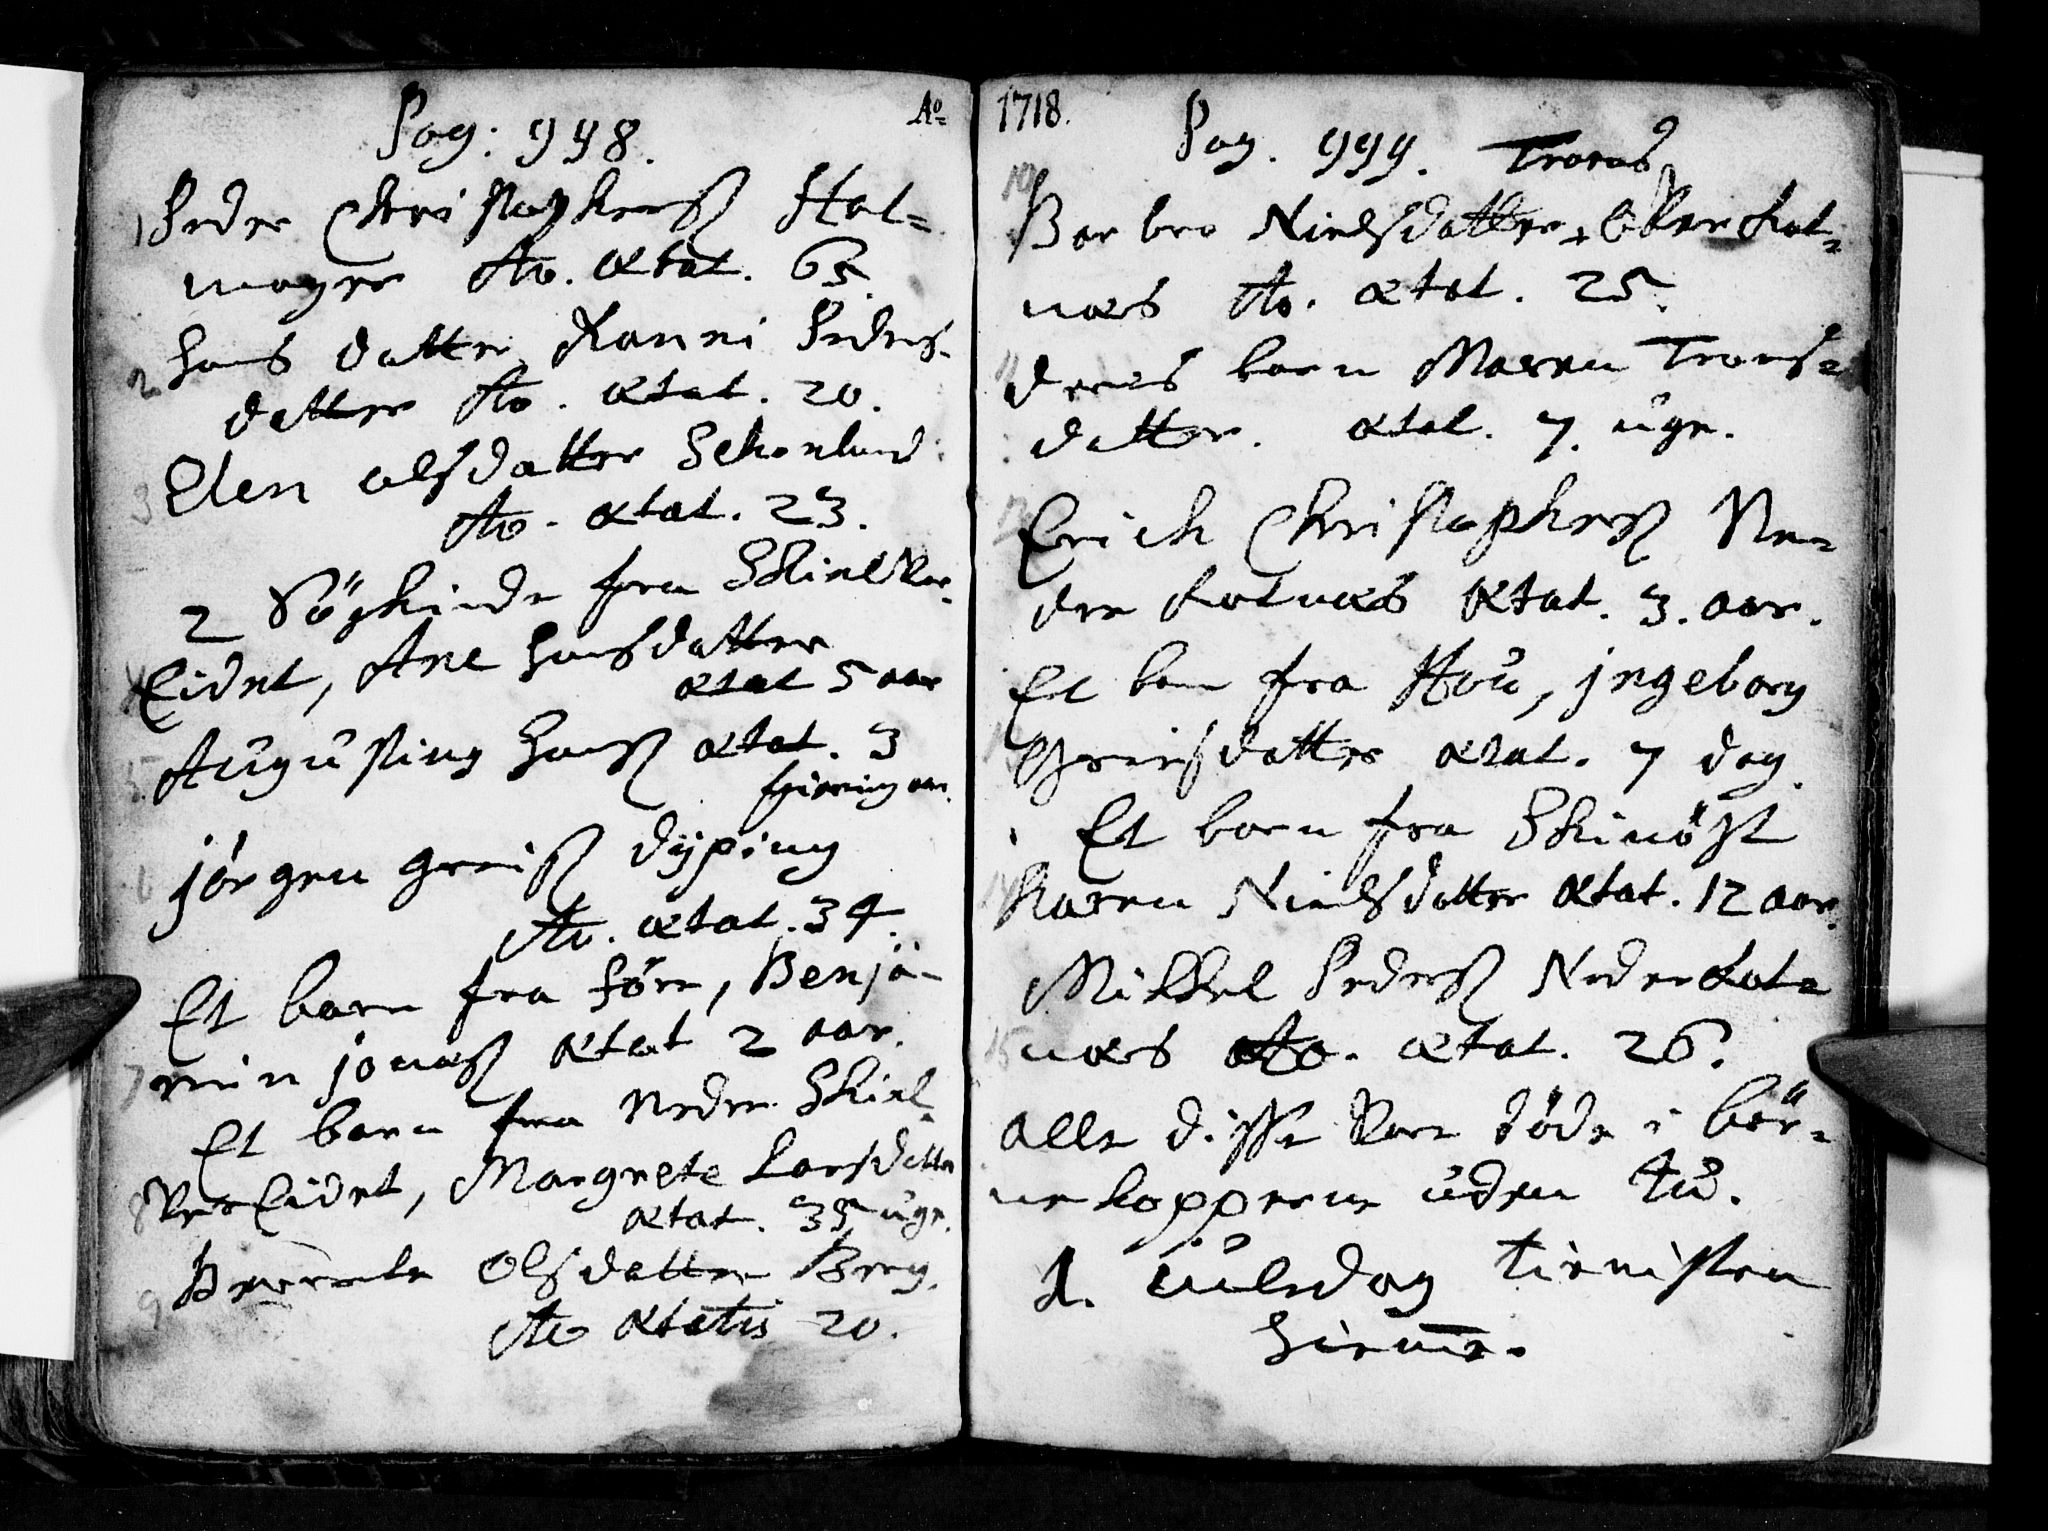 Pag: 998. Ao
1 Peder Christophersß Hal=
moyre Ao. ætat. 63.
2 Hans datter, Karri Peders=
datter Ao. ætat. 20.
3 Elen olsdatter Schonlund
Ao. ætat. 23.
2 Söskinde fra Skielver=
4 Eidet, Ane Hansdatter
ætat 5 aar
5 Augusting Hansß ætat. 3
fiering aar.
6 jörgen Greisß dÿping
Ao. ætat. 34.
Et barn fra före, Benja=
7 min jonæsß ætat 2 aar.
Et barn fra Neder Skiel=
8 ver Eidet, Margrete Larsdatter
ætat. 35 uge.
9 Berrette Olsdatter Berg.
Ao ætatis 20.
1718. Pag. 999. Troens
10 Barbro Nielsdatter + Over Kot=
næs Ao. ætat. 25.
11 deris barn Maren Trons=
datter. ætat. 7. uge.
12 Erich Christophersß Ne=
der Kotnæs ætat. 3. aar.
Et barn fra Hou, jngeborg
13 Greisdatter ætat. 7 dag.
Et barn fra Skinöst
14 Karen Nielsdatter ætat. 12 aar.
Mikkel Pedersß Neder Kot=
15 næs Ao. ætat. 26.
Alle disse vare döde i bör=
ne kopperne uden tu.
1. juledag tienisten
hieme.